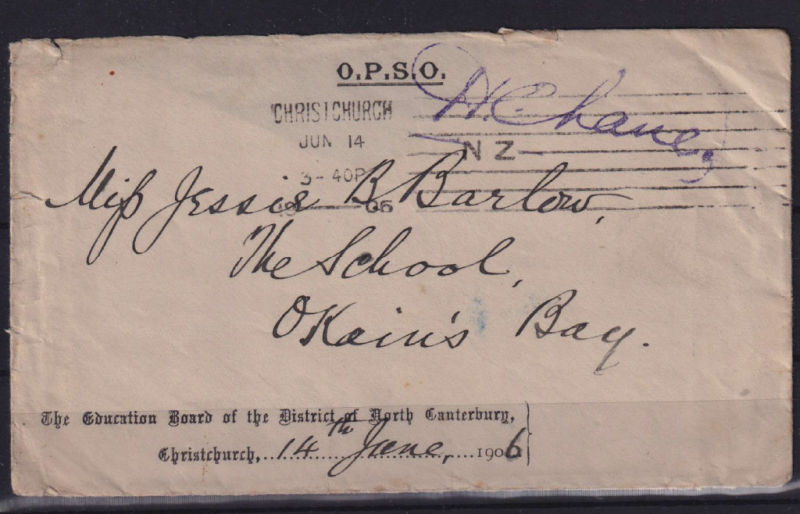 O.P.S.O.
H.C. Lane.
CHRISTCHURCH
JUN 14
NZ
3-40P
1906
Miſs Jessie B. Barlow,
The School,
OKain's Bay.
The Education Board of the District of North Canterbury,
Christchurch, 14th June, 1906